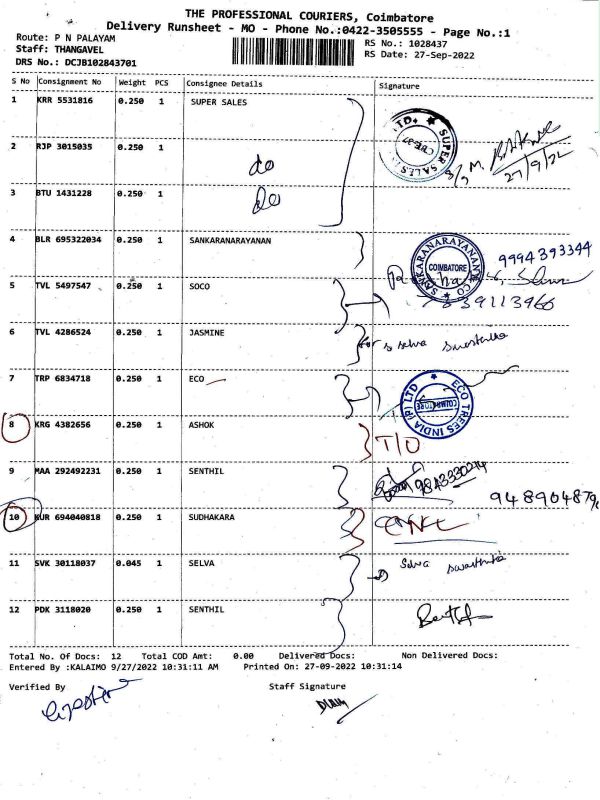 THE PROFESSIONAL COURIERS, Coimbatore
Delivery Runsheet - MO - Phone No.:0422-3505555 - Page No.:1
Route: P N PALAYAM
RS No.: 1028437
Staff: THANGAVEL
RS Date: 27-Sep-2022
DRS No.: DCJB102843701
S No Consignment No Weight PCS Consignee Details Signature
1 KRR 5531816 0.250 1 SUPER SALES
2 RJP 3015035 0.250 1 do
27/9/22
3 BTU 1431228 0.250 1 do
4 BLR 695322034 0.250 1 SANKARANARAYANAN
SANKARANARAYANAN & CO COIMBATORE
9994393344
5 TVL 5497547 0.250 1 SOCO
6 TVL 4286524 0.250 1 JASMINE
for s selva swasthika
7 TRP 6834718 0.250 1 ECO
ECO TREES INDIA (P) LTD COIMBATORE
8 KRG 4382656 0.250 1 ASHOK T/O
9 MAA 292492231 0.250 1 SENTHIL
10 KUR 694040818 0.250 1 SUDHAKARA CNL
11 SVK 30118037 0.045 1 SELVA Selva swasthika
12 PDK 3118020 0.250 1 SENTHIL
Total No. Of Docs: 12 Total COD Amt: 0.00 Delivered Docs: Non Delivered Docs:
Entered By :KALAIMO 9/27/2022 10:31:11 AM Printed On: 27-09-2022 10:31:14
Verified By Staff Signature